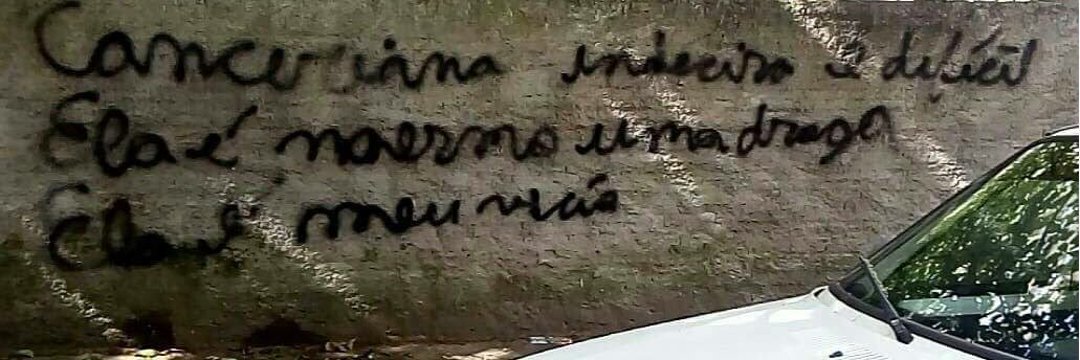 Canceriana indecisa é difícil
Ela é mesmo uma droga
Ela é meu vício